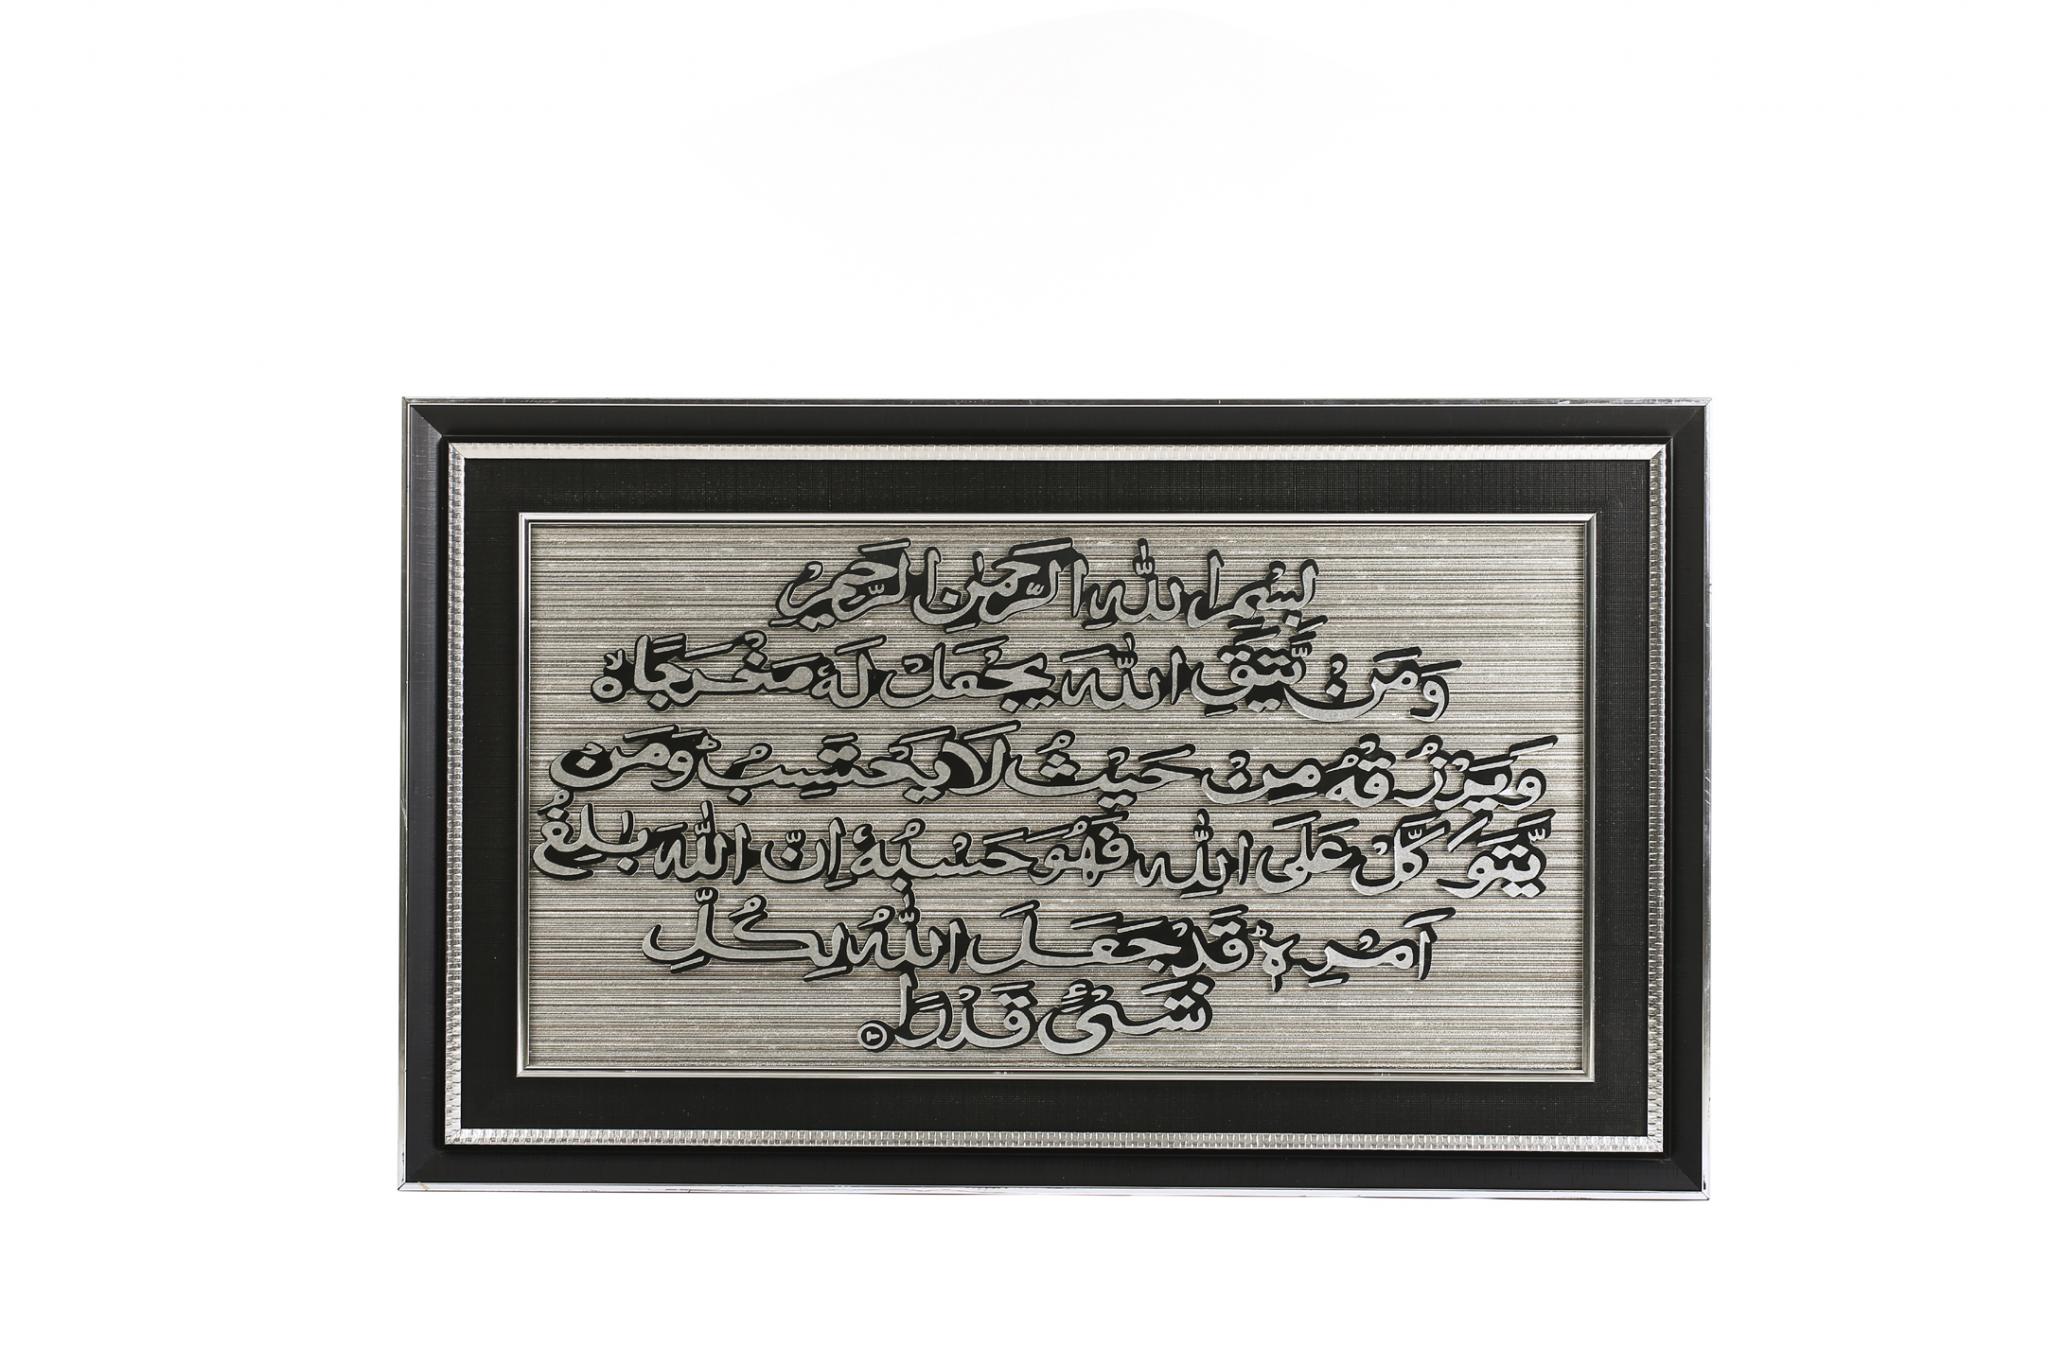 بِسْمِ اللّٰهِ الرَّحْمٰنِ الرَّحِيْمِ
وَمَنْ يَّتَّقِ اللّٰهَ يَجْعَلْ لَهٗ مَخْرَجًا ۙ
وَيَرْزُقْهُ مِنْ حَيْثُ لَا يَحْتَسِبُ ؕ وَمَنْ
يَّتَوَكَّلْ عَلَى اللّٰهِ فَهُوَ حَسْبُهٗ اِنَّ اللّٰهَ بٰلِغُ
اَمْرِهٖ ؕ قَدْ جَعَلَ اللّٰهُ لِكُلِّ
شَىْءٍ قَدْرًا